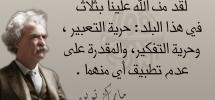 لقد منّ الله علينا بثلاث
في هذا البلد : حرية التعبير ،
وحرية التفكير، والمقدرة على
عدم تطبيق أي منهما .
مارك توين